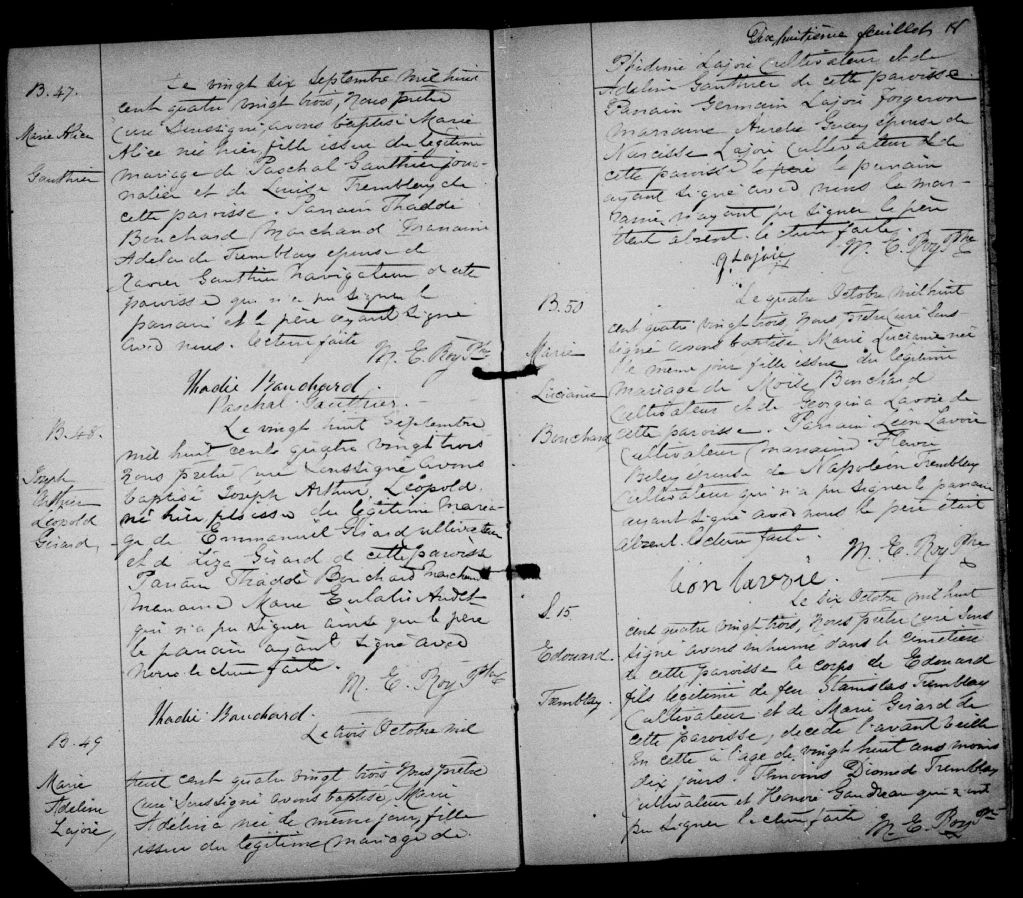 B. 47.
Marie Alice
Gauthier
Le vingt six Septembre mil huit
cent quatre vingt trois, Nous prêtre
Curé Soussigné avons baptisé Marie
Alice née hier, fille issue du légitime
mariage de Paschal Gauthier jour-
nalier et de Louise Tremblay de
cette paroisse. Parrain Thaddé
Bouchard Marchand Marraine
Adelaide Tremblay epouse de
Xavier Gauthier Navigateur d cette
paroisse qui n'a pu signer le
parrain et le père ayant signé
avec nous. lecture faite
M. E. Roy Ptre
Thadée Bouchard.
Paschal Gauthier.
B. 48.
Joseph
Arthur
Léopold
Girard
Le vingt huit Septembre
mil huit cent quatre vingt trois
nous prêtre Curé Soussigné avons
baptisé Joseph Arthur Léopold.
né hier fils issu du légitime maria-
ge de Emmanuel Girard cultivateur
et de Liza Girard de cette paroisse
Parrain Thaddé Bouchard Marchand
Marraine Marie Eulalie Audet
qui n'a pu signer ainsi que le père
le parrain ayant signé avec
Nous lecture faite.
M. E. Roy Ptre
Thadée Bouchard.
B. 49
Marie
Adelina
Lajoie,
Le trois Octobre mil
huit cent quatre vingt trois Nous prêtre
Curé Soussigné avons baptisé Marie
Adelina née le même jour, fille
issue du légitime mariage de
Dix huitième feuillet 18
Phidime Lajoie Cultivateur et de
Adeline Gauthier de cette paroisse.
Parrain Germain Lajoie Forgeron
Marraine Aurelie Guay épouse de
Narcisse Lajoie Cultivateur de
cette paroisse le père le parrain
ayant signé avec nous la mar-
raine n'ayant pu signer le père
était absent. lecture faite
M. E. Roy Ptre
G Lajoie
B. 50
Marie
Lucianie
Bouchard
Le quatre Octobre mil huit
cent quatre vingt trois, nous Prêtre Curé Sous-
signé avons baptisé Marie Lucianie née
le même jour fille issue du légitime
mariage de Moïse Bouchard
Cultivateur et de Georgina Lavoie de
cette paroisse. Parrain Léon Lavoie
Cultivateur Marraine Flavie
Beley épouse de Napoleon Tremblay
Cultivateur qui n'a pu signer le parrain
ayant signé avec nous le père était
absent. lecture faite.
M. E. Roy Ptre
Léon Lavoie.
S. 15
Edouard.
Tremblay.
Le six Octobre mil huit
cent quatre vingt trois, Nous prêtre Curé Sous
signé avons inhumé dans le cimetière
de cette paroisse le corps de Edouard
fils légitime de feu Stanislas Tremblay
Cultivateur et de Marie Girard de
cette paroisse, décédé l'avant veille
en cette à l'age de vingt huit ans moins
dix jours. Témoins Diomed Tremblay
cultivateur et Honoré Gaudreau qui n'ont
pu signer lecture faite
M. E. Roy Ptre